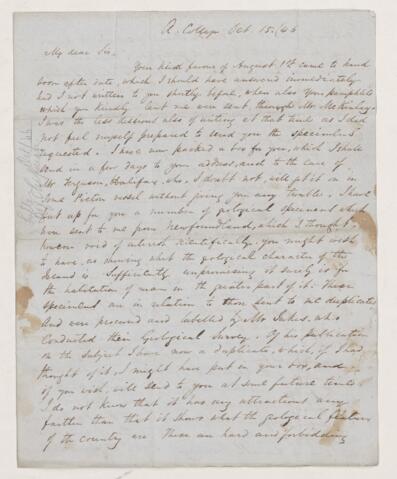 A. College Oct. 15. /46
My dear Sir.
Your kind favour of August 1st came to hand
soon after date, which I should have answered immediately
had I not written to you shortly before, when also your pamphlets
which you kindly lent me were sent through Mr McKinlay.
I was the less desirous also of writing at that time as I did
not feel myself prepared to send you the specimens
requested. I have now packed a box for you, which I shall
send in a few days to your address, and to the care of
Mr. Ferguson, Halifax, who, I doubt not, will put it on in
some Pictou vessel without giving you any trouble. I have
put up for you a number of geological specimens which
were sent to me from Newfoundland, which I thought
however void of interest scientifically, you might wish
to have, as showing what the geological character of the
Island is. Sufficiently unpromising it surely is for
the habitation of man in the greater part of it. These
specimens are in relation to those sent to me duplicates
and were procured and labelled by Mr Jukes, who
conducted their Geological Survey. Of his publication
on the subject I have now a duplicate, which, if I had
thought of it, I might have put in your box, and
if you wish, will send to you at some future time.
I do not know that it has any attractions any
farther than that it shows what the geological features
of the country are. These are hard and forbidding